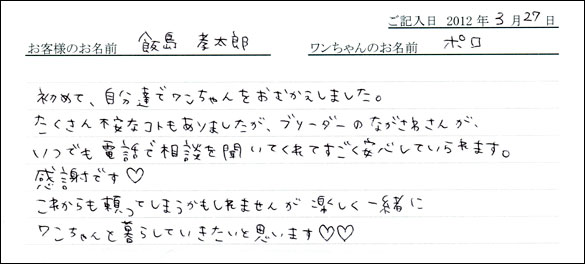 ご記入日 2012 年 3 月 27 日
お客様のお名前 飯島 孝太郎 ワンちゃんのお名前 ポロ
初めて、自分達でワンちゃんをおむかえしました。
たくさん不安なコトもありましたが、ブリーダーのながさわさんが、
いつでも電話で相談を聞いてくれてすごく安心していられます。
感謝です♡
これからも頼ってしまうかもしれませんが 楽しく一緒に
ワンちゃんと暮らしていきたいと思います♡♡